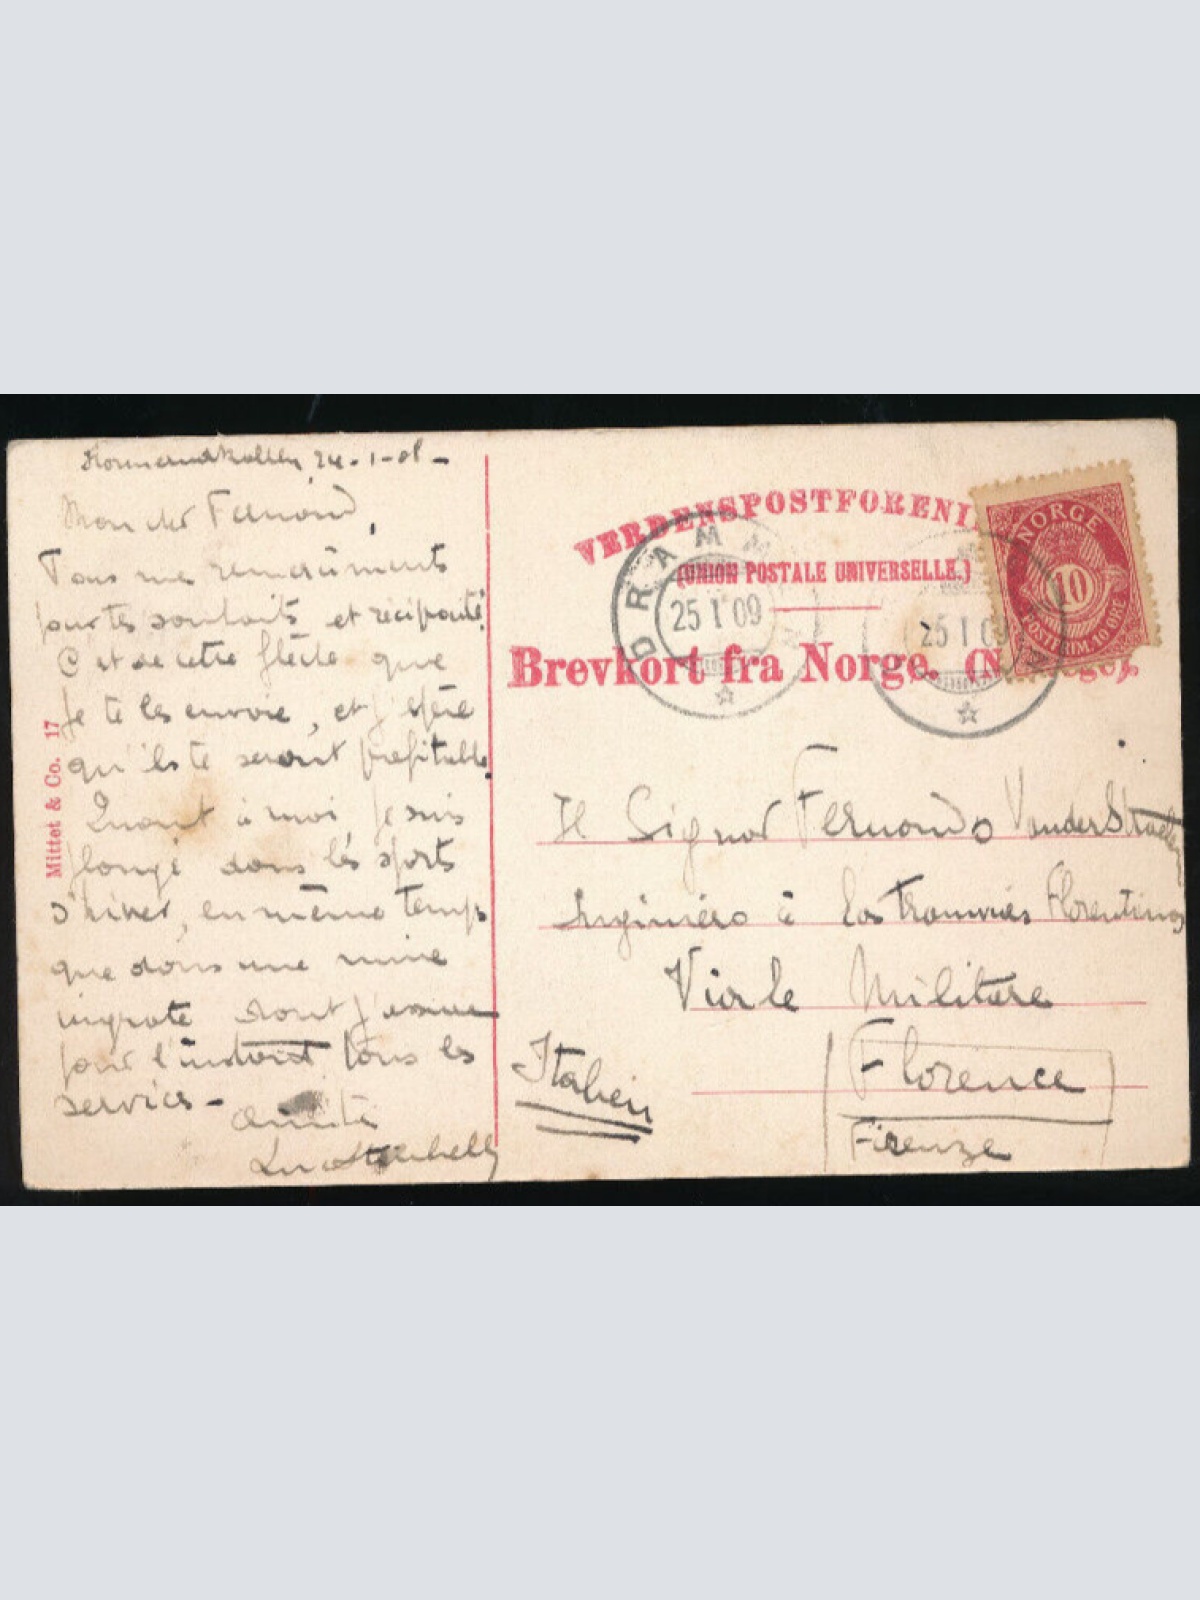 24-1-
Mon cher Fernand,
Tous mes remerciments
pour tes souhaits et réciproité.
C'est de cette flèche que
je te les envoie, et j'espère
qu'ils te seront profitable.
Quant à moi, je suis
plongé dans les sports
d'hiver, en même temps
que dans une mine
ingrate dont j'assume
pour l'instant tous les
services -
Amitié
Mittet & Co. 17
VERDENSPOSTFORENI
(UNION POSTALE UNIVERSELLE.)
Brevkort fra Norge. (N
NORGE
10
POSTFRIM. 10 ØRE
DRAMM
25 I 09
25 I 09
Il Signor Fernando VanderStraeten
Ingéniero à los tramvies Florentinos
Viale Militare
Florence
Firenze
Italien